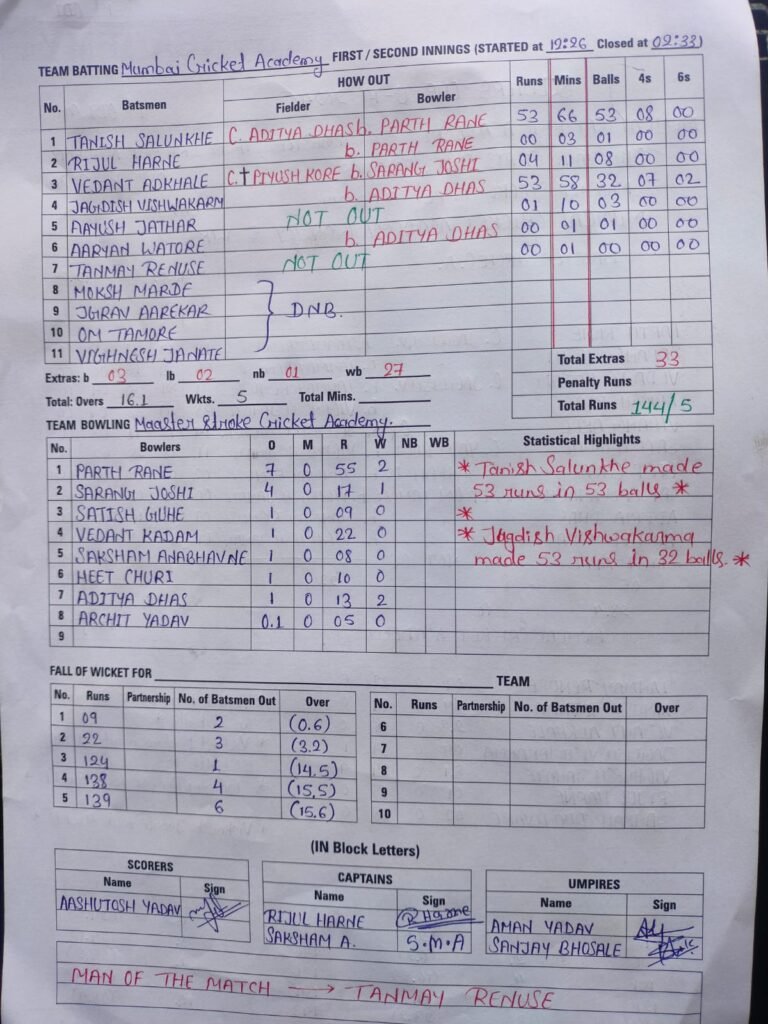 TEAM BATTING Mumbai Cricket Academy FIRST / SECOND INNINGS (STARTED at 12:26 Closed at 02:33)
No. Batsmen HOW OUT Runs Mins Balls 4s 6s
Fielder Bowler
1 TANISH SALUNKHE C. ADITYA DHAS b. PARTH RANE 53 66 53 08 00
2 RIJUL HARNE b. PARTH RANE 00 03 01 00 00
3 VEDANT ADKHALE C.† PIYUSH KORE b. SARANG JOSHI 04 11 08 00 00
4 JAGDISH VISHWAKARM b. ADITYA DHAS 53 58 32 07 02
5 AAYUSH JATHAR NOT OUT 01 10 03 00 00
6 AARYAN WATORE b. ADITYA DHAS 00 01 01 00 00
7 TANMAY RENUSE NOT OUT 00 01 00 00 00
8 MOKSH MARDE
9 AAREKAR DNB.
10 OM TAMORE
11 VIGHNESH JANATE
Extras: b 03 lb 02 nb 01 wb 27 Total Extras 33
Penalty Runs
Total: Overs 16.1 Wkts. 5 Total Mins. Total Runs 144/5
TEAM BOWLING Maaster Stroke Cricket Academy.
No. Bowlers O M R W NB WB Statistical Highlights
1 PARTH RANE 7 0 55 2 * Tanish Salunkhe made
2 SARANG JOSHI 4 0 17 1 53 runs in 53 balls *
3 SATISH GUHE 1 0 09 0 *
4 VEDANT KADAM 1 0 22 0 * Jagdish Vishwakarma
5 SAKSHAM ANABHAVNE 1 0 08 0 made 53 runs in 32 balls. *
6 HEET CHURI 1 0 10 0
7 ADITYA DHAS 1 0 13 2
8 ARCHIT YADAV 0.1 0 05 0
9
FALL OF WICKET FOR TEAM
No. Runs Partnership No. of Batsmen Out Over No. Runs Partnership No. of Batsmen Out Over
1 09 2 (0.6) 6
2 22 3 (3.2) 7
3 124 1 (14.5) 8
4 138 4 (15.5) 9
5 139 6 (15.6) 10
(IN Block Letters)
SCORERS CAPTAINS UMPIRES
Name Sign Name Sign Name Sign
AASHUTOSH YADAV RIJUL HARNE R Harne AMAN YADAV
SAKSHAM A. S.M.A SANJAY BHOSALE
MAN OF THE MATCH → TANMAY RENUSE